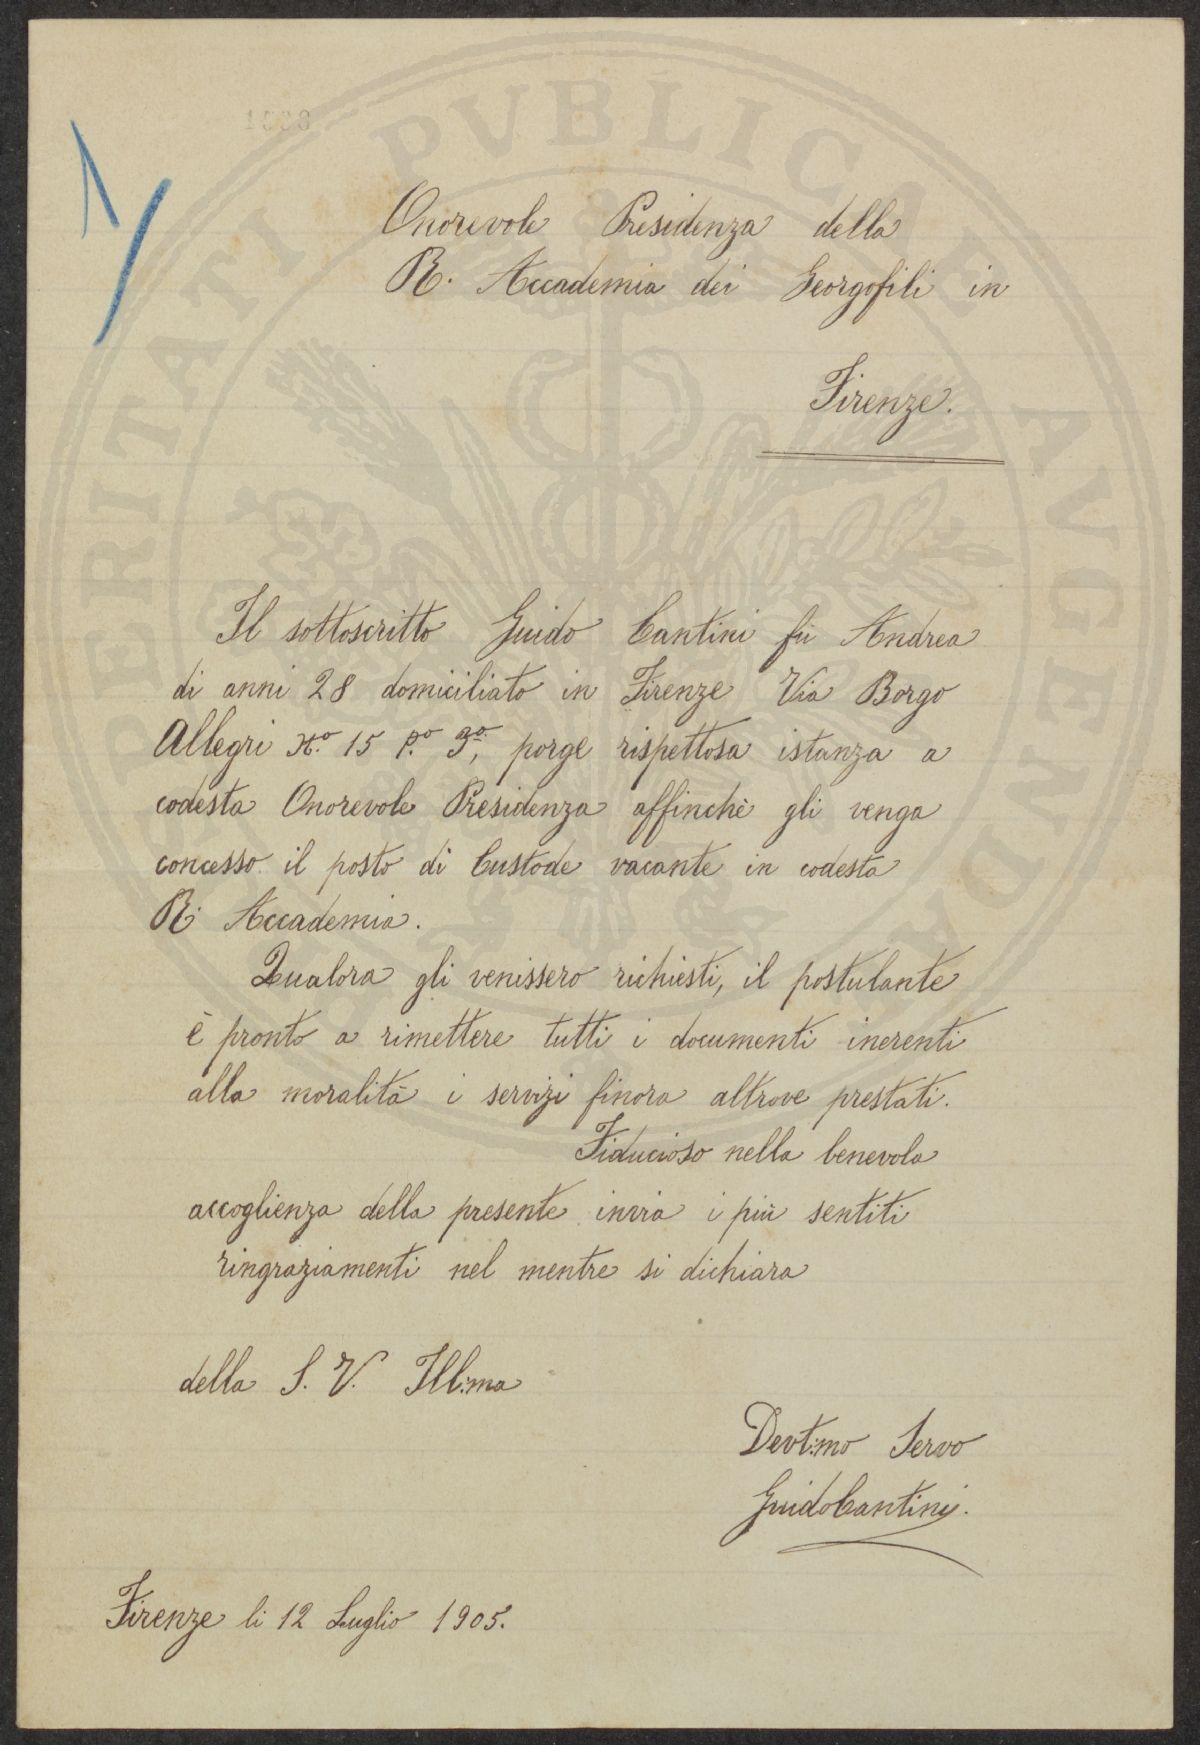 Onorevole Presidenza della
R. Accademia dei Georgofili in
Firenze.
Il sottoscritto Guido Cantini fù Andrea
di anni 28 domiciliato in Firenze Via Borgo
Allegri N.o 15 P.o 3o, porge rispettosa istanza a
codesta Onorevole Presidenza affinchè gli venga
concesso il posto di Custode vacante in codesta
R. Accademia.
Qualora gli venissero richiesti, il postulante
è pronto a rimettere tutti i documenti inerenti
alla moralità i servizi finora altrove prestati.
Fiducioso nella benevola
accoglienza della presente invia i più sentiti
ringraziamenti nel mentre si dichiara
della S. V. Ill:ma
Devt:mo Servo
Guido Cantini.
Firenze li 12 Luglio 1905.
PROSPERITATI PVBLICAE AVGENDAE